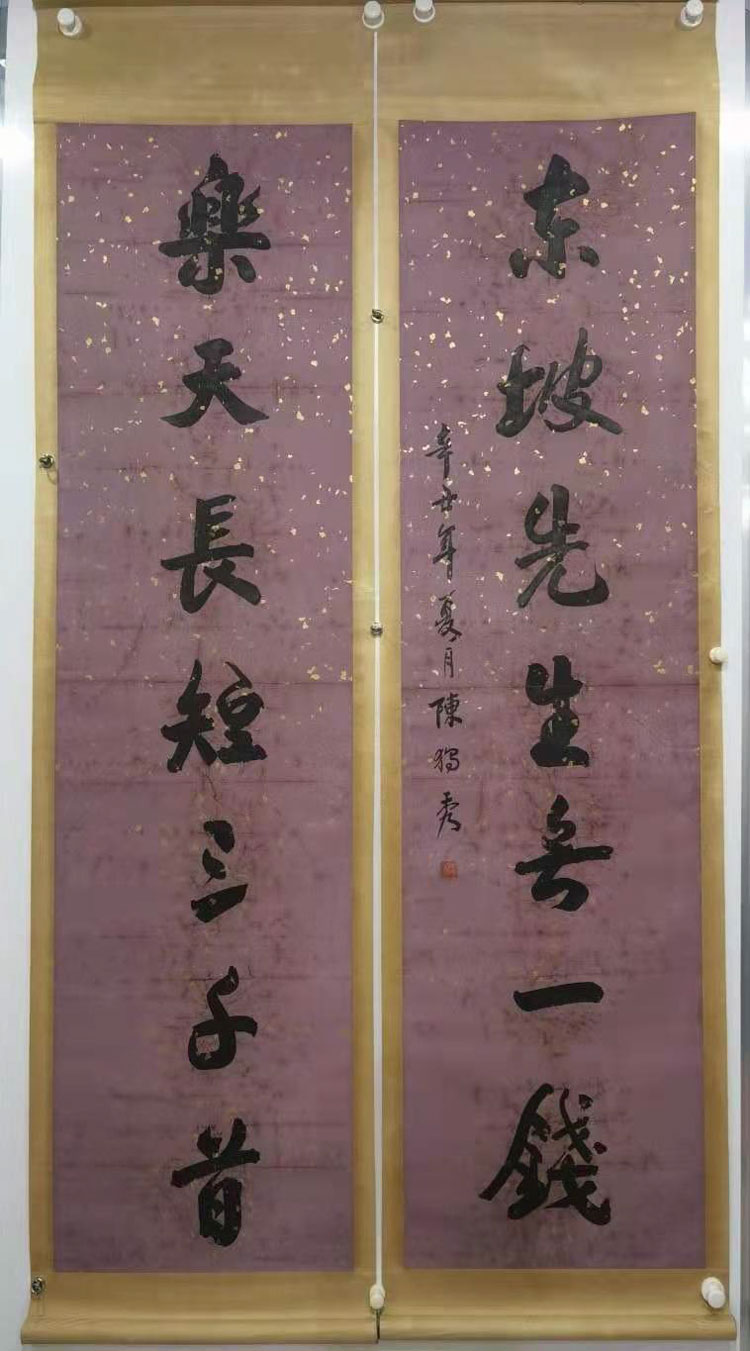 东坡先生无一錢
辛丑年夏月陳獨秀
樂天長短三千首